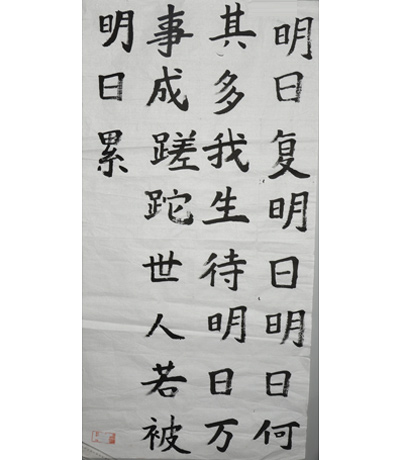 明日复明日明日何
其多我生待明日万
事成蹉跎世人若被
明日累